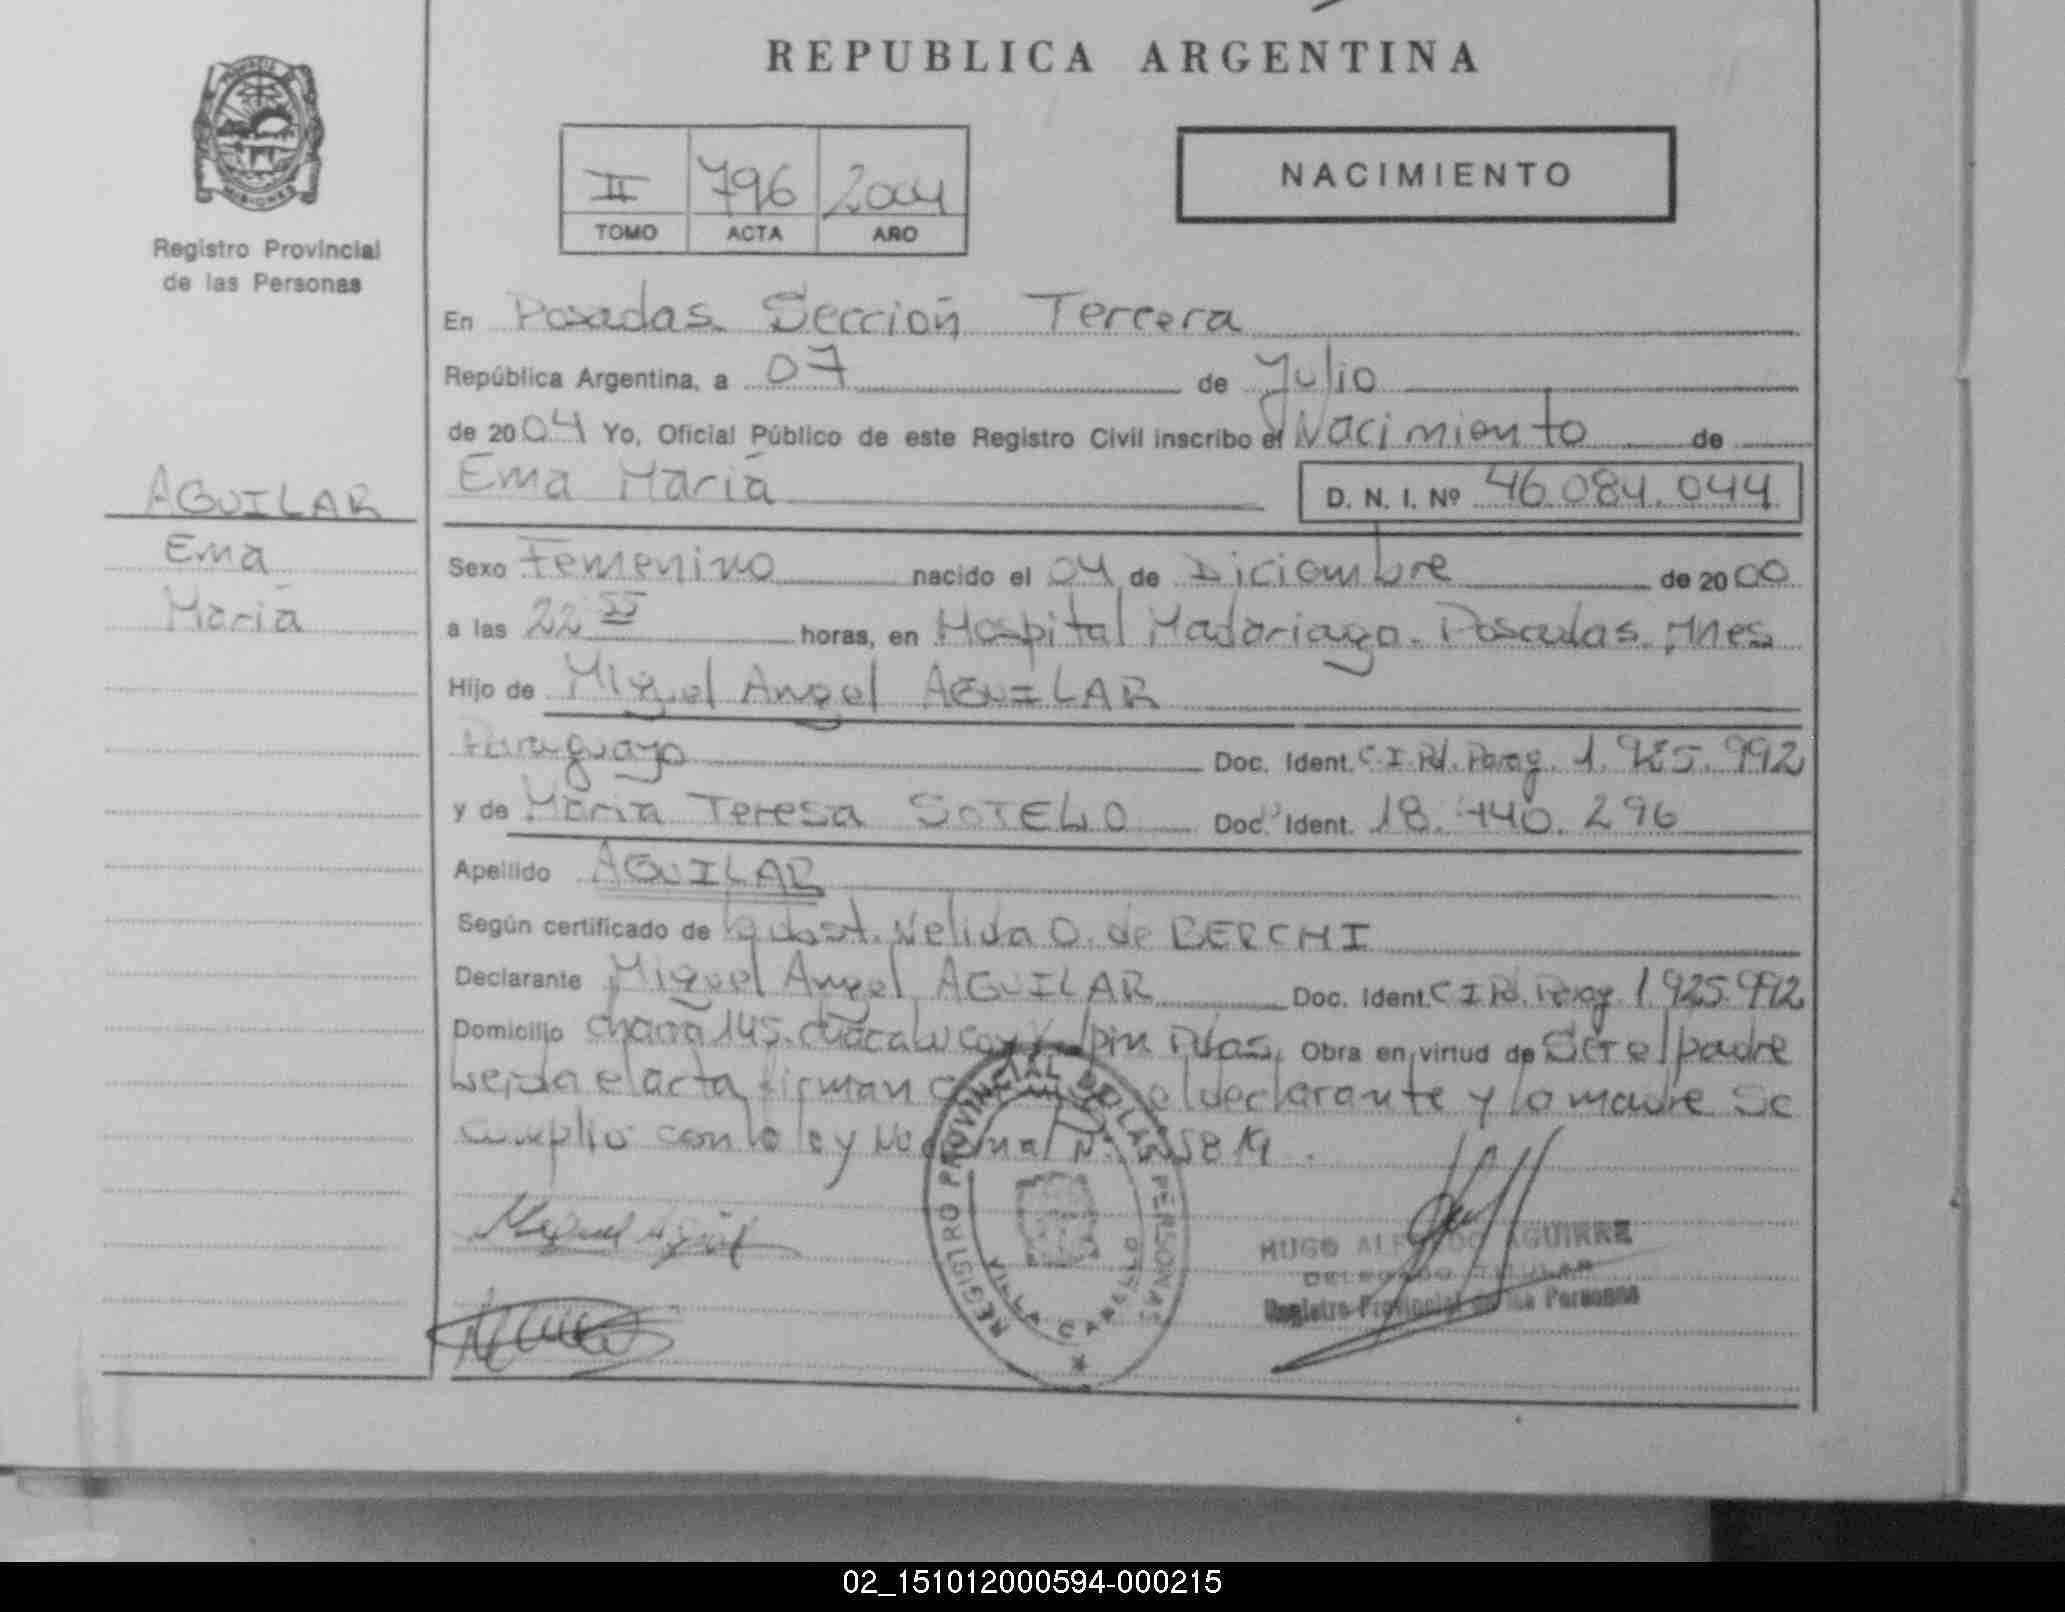 REPUBLICA ARGENTINA
PROVINCIA DE MISIONES
Registro Provincial
de las Personas
II 796 2004
TOMO ACTA AÑO
NACIMIENTO
En Posadas Sección Tercera
República Argentina, a 07 de Julio
de 2004 Yo, Oficial Público de este Registro Civil inscribo el Nacimiento de
Ema María D. N. I. Nº 46.084.044
AGUILAR
Ema
María
Sexo Femenino nacido el 04 de Diciembre de 2000
a las 22 55 horas, en Hospital Madariaga. Posadas. Mnes
Hijo de Miguel Angel AGUILAR
Paraguayo Doc. Ident. C.I.Pol. Parag. 1.925.992
y de María Teresa SOTELO Doc. Ident. 18.440.296
Apellido AGUILAR
Según certificado de la obst. Nelida O. de BERCHI
Declarante Miguel Angel AGUILAR Doc. Ident. C I Pol. Parag. 1.925.992
Domicilio chacra 145. Obra en virtud de Ser el padre
leida el acta firman el declarante y la madre se
cumplio con la ley Nacional Nº
REGISTRO PROVINCIAL DE LAS PERSONAS
VILLA CABELLO
HUGO ALFREDO AGUIRRE
DELEGADO TITULAR
Registro Provincial de las Personas
02_151012000594-000215